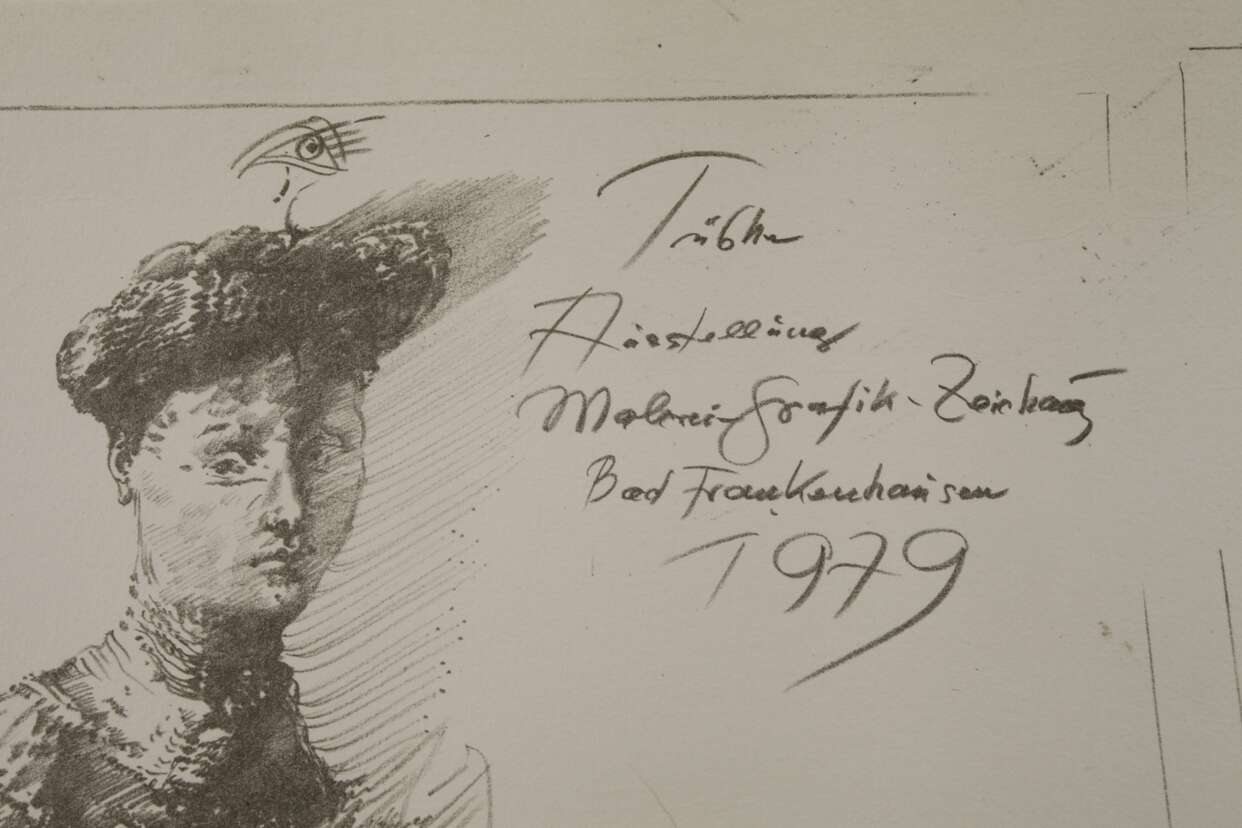 Tübke
Ausstellung
Malerei-Grafik-Zeichnung
Bad Frankenhausen
1979